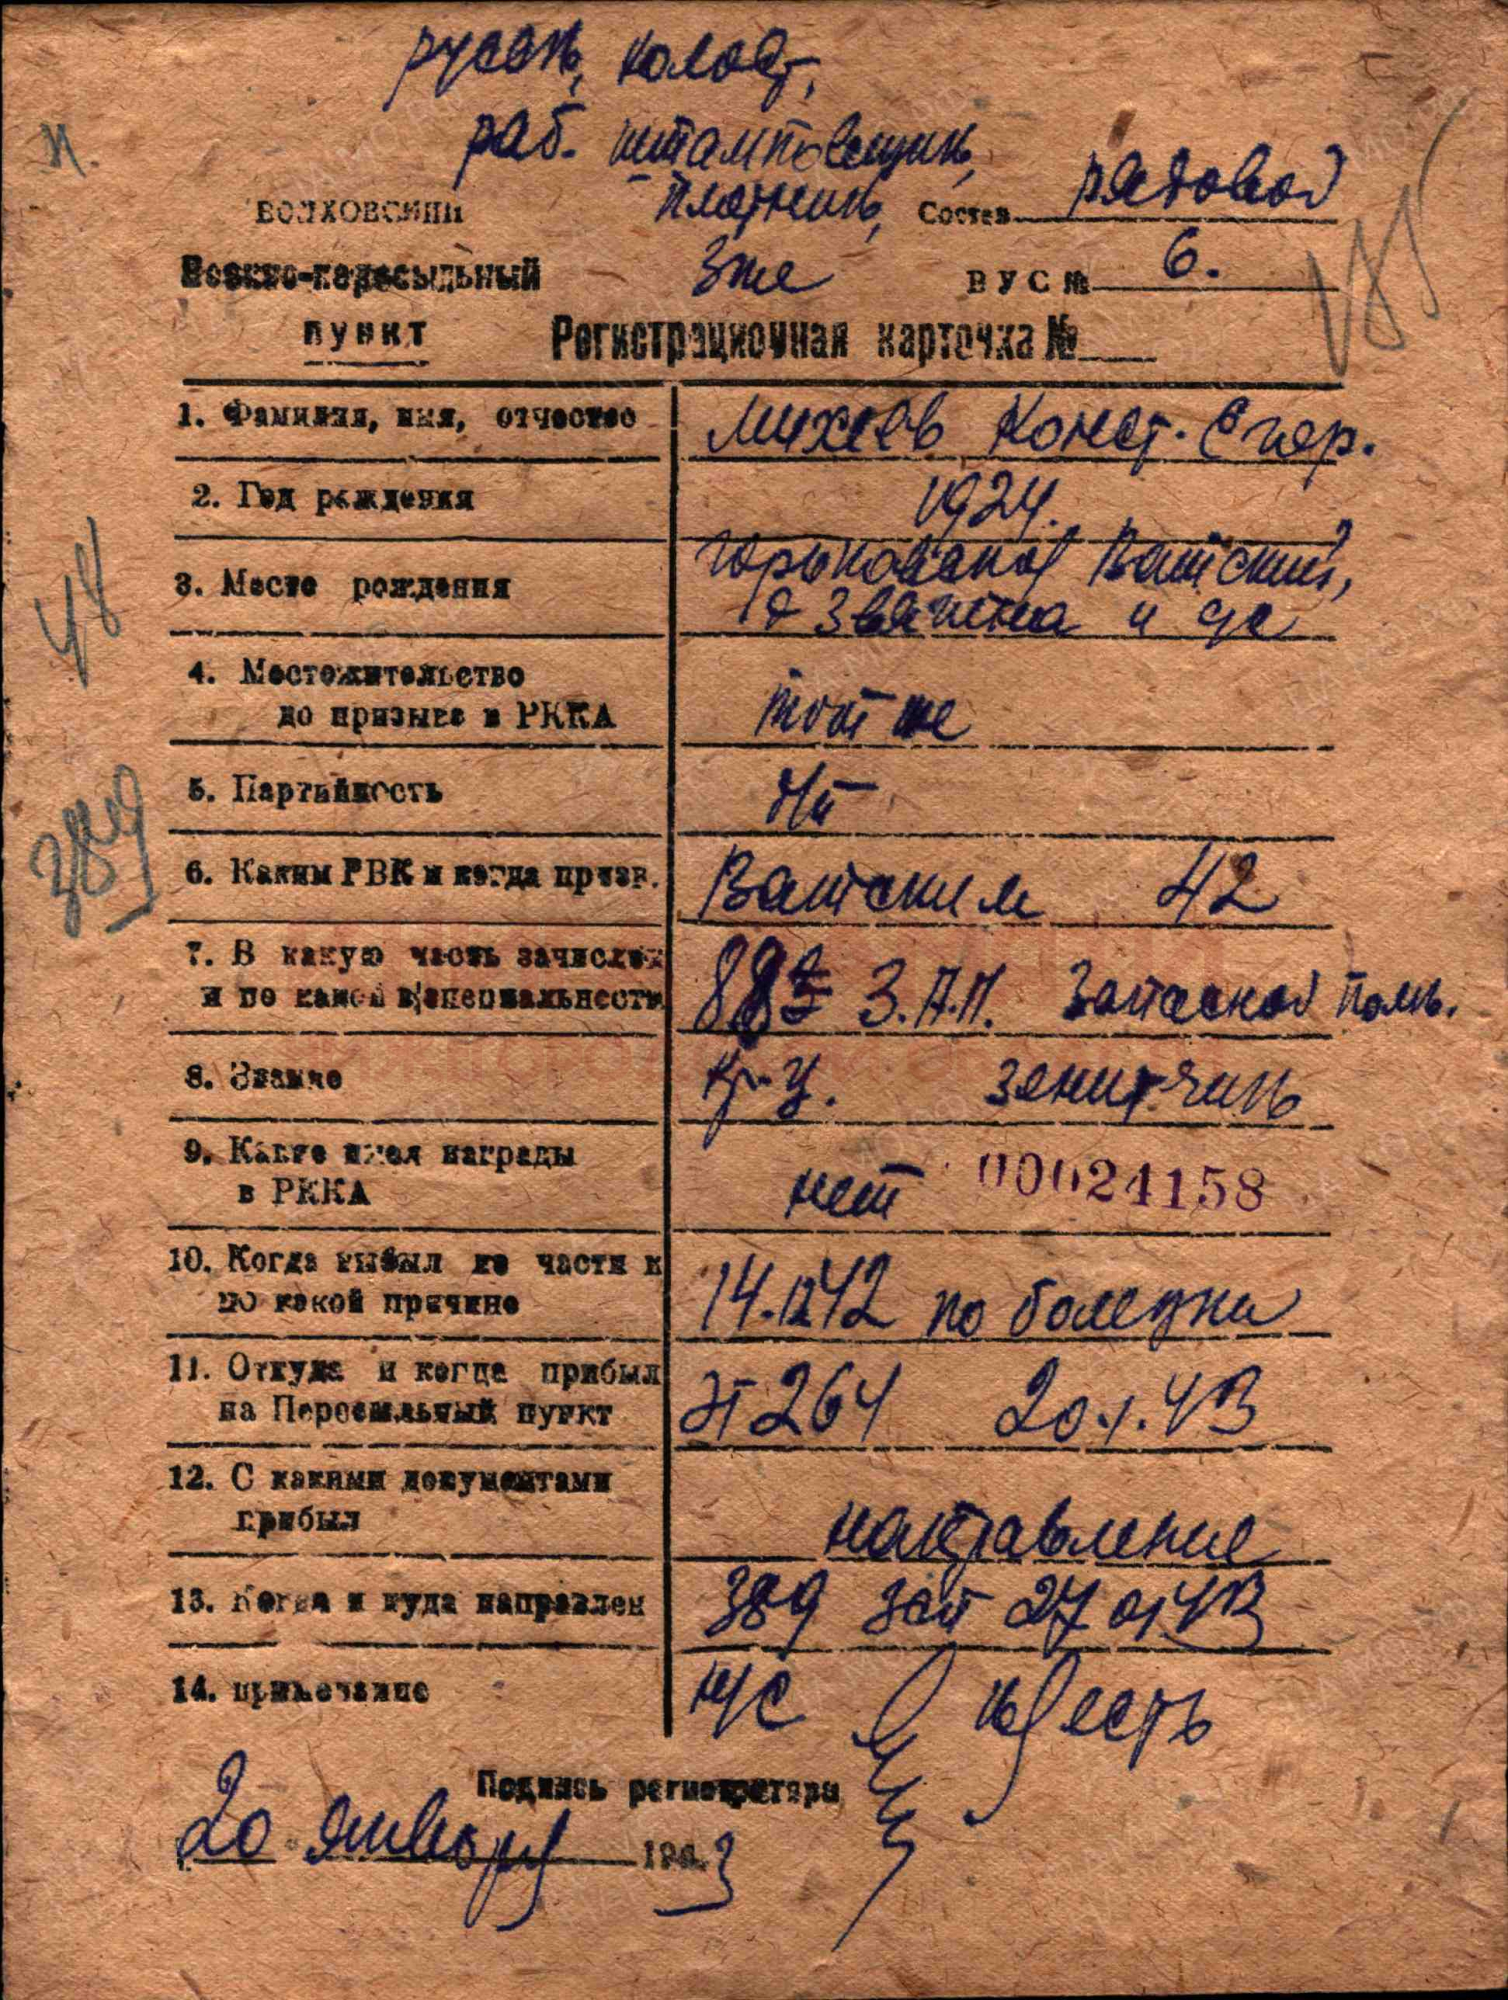 русск, холост,
раб. штамповщик,
плотник,
Состав рядовой
ВОЛХОВСКИЙ
Военно-пересыльный
3кл
ВУС № 6.
пункт
Регистрационная карточка №
1. Фамилия, имя, отчество Михеев Конст. Егор.
2. Год рождения 1924.
3. Место рождения Горьковской Вачский,
и др
4. Местожительство
до призыва в РККА тот же
5. Партийность б/п
6. Каким РВК и когда призв. Вачским 42
7. В какую часть зачислен
и по какой специальности З.А.П. Запасной полк.
8. Звание кр-ц. зенитчик
9. Какие имел награды
в РККА нет 00024158
10. Когда выбыл из части и
по какой причине 14.12.42 по болезни
11. Откуда и когда прибыл
на Пересыльный пункт ЭГ 264 20.1.43
12. С какими документами
прибыл направление
13. Когда и куда направлен 389 зсп 27.01.43
14. примечание н/с есть
Подпись регистратора
20 января 194 3
48
389